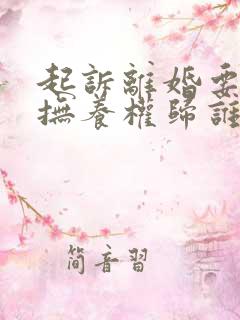 起訴離婚要
撫養權歸誰
簡音習